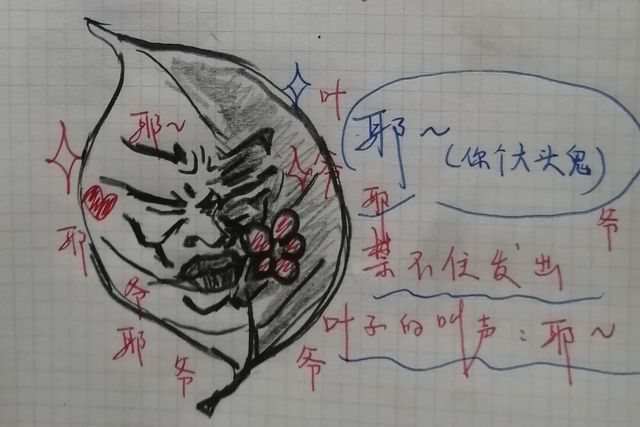 叶
耶～
耶～（你个大头鬼）
爷
耶
爷
耶
禁不住发出
爷
叶子的叫声：耶～
耶
爷
爷